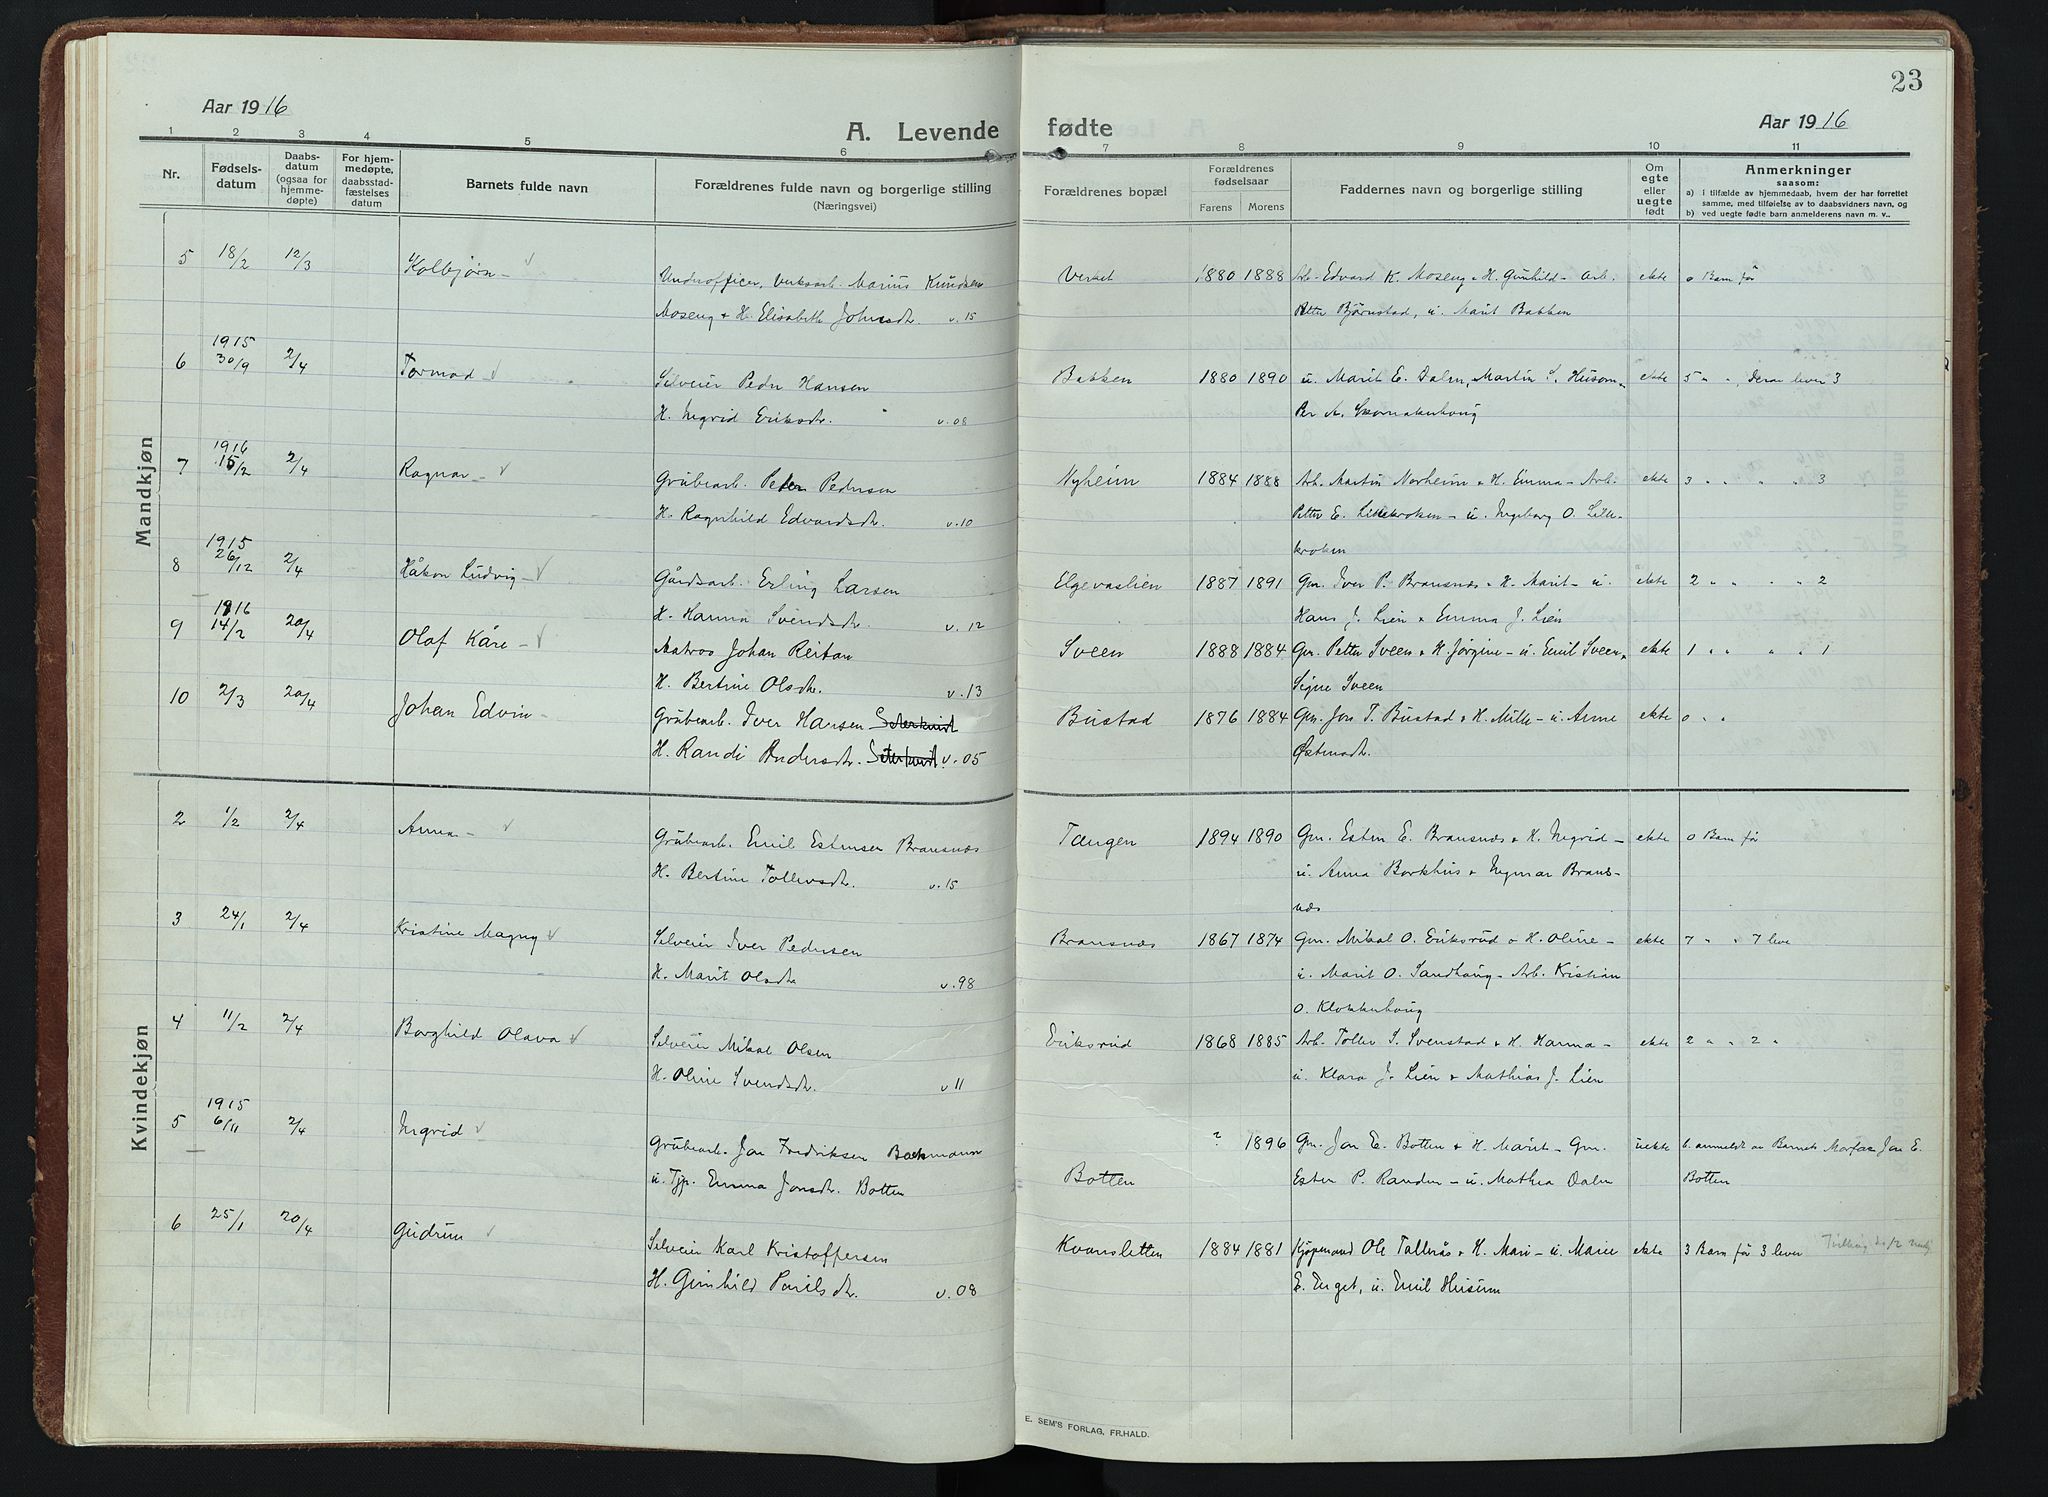 23
Aar 1916
Aar 1916
A. Levende fødte
1 2 3 4 5 6 7 8 9 10 11
Nr.
Fødsels-
datum
Daabs-
datum
(ogsaa for
hjemme-
døpte)
For hjem-
medøpte,
daabsstad-
fæstelses
datum
Barnets fulde navn
Forældrenes fulde navn og borgerlige stilling
(Næringsvei)
Forældrenes bopæl
Forældrenes
fødselsaar
Farens Morens
Faddernes navn og borgerlige stilling
Om
egte
eller
uegte
født
Anmerkninger
saasom:
a) i tilfælde av hjemmedaab, hvem der har forrettet
samme, med tilføielse av to daabsvidners navn, og
b) ved uegte fødte barn anmelderens navn m. v..
Mandkjøn
5 18/2 12/3 Kolbjørn
Underofficer, Verksarb. Marius Knudsen Verket 1880 1888 Arb. Edvard K. Moseng & H. Gunhild – Arb. ekte 0 Barn før
Moseng & H. Elisabeth Johnsdr. v. 15 Petter Bjørnstad, u. Marit Bakken
1915
6 30/9 2/4 Tormod
Selveier Peder Hansen Bakken 1880 1890 u. Marit E. Dalen, Martin S. Husom ekte 5 " ", derav lever 3
H. Ingrid Eriksdr. v. 08 Per A.
1916
7 15/2 2/4 Ragnar
Grubearb. Peder Pedersen Nyheim 1884 1888 Arb. Martin Norheim & H. Emma – Arb. ekte 3 " " " 3
H. Ragnhild Edvardsdr. v. 10 Petter E. Lillekroken – u. Ingeborg O. Lille-
kroken
1915
8 26/12 2/4 Håkon Ludvig
Gårdsarb. Erling Larsen Elgevaslien 1887 1891 Gm. Iver P. Bransnes & H. Marit – u. ekte 2 " " " 2
H. Hanna Svendsdr. v. 12 Hans J. Lien & Emma J. Lien
1916
9 14/2 20/4 Olaf Kåre
Matros Johan Reitan Sveen 1888 1884 Gm. Petter Sveen & H. Jørgine – u. Emil Sveen & ekte 1 " " " 1
H. Bertine Olsdr. v. 13 Signe Sveen
10 2/3 20/4 Johan Edvin
Grubearb. Iver Hansen Bustad 1876 1884 Gm. Jon T. Bustad & H. Mille – u. Anne ekte 0 "
H. Randi Andersdr. v. 05 Østensdr.
Kvindekjøn
2 1/2 2/4 Anna
Grubearb. Emil Estensen Bransnæs Tangen 1894 1890 Gm. Esten E. Bransnæs & H. Ingrid – ekte 0 Barn før
H. Bertine Tollevsdr. v. 15 u. Anna Borkhus & Ingmar Brans-
næs
3 24/1 2/4 Kristine Magny
Selveier Iver Pedersen Bransnæs 1867 1874 Gm. Mikal O. Eriksrud & H. Oline – ekte 7 " " 7 leve
H. Marit Olsdr. v. 98 u. Marit O. Sandhaug – Arb. Kristian
O. Klokkerhaug
4 11/2 2/4 Borghild Olava
Selveier Mikal Olsen Eriksrud 1868 1885 Arb. Tollev S. Svenstad & H. Hanna – ekte 2 " " 2 "
H. Oline Svendsdr. v 11 u. Klara J. Lien & Mathias J. Lien
1915
5 6/11 2/4 Ingrid
Grubearb. Jon Fredriksen Backmann ? 1896 Gm. Jon E. Botten & H. Marit – Gm. uekte b. anmeldt av Barnets Morfar Jon E.
u. Tjp. Emma Jonsdr. Botten Botten Esten P. Randen – u. Mathea Dalen Botten
6 25/1 20/4 Gudrun
Selveier Karl Kristoffersen Kvansletten 1884 1881 Kjøpmand Ole Tallerås & H. Mari – u. Marie ekte 3 Barn før 3 lever
H. Gunhild Poulsdr. v. 08 E. Enget, u. Emil Husum
E. SEM'S FORLAG, FR.HALD.